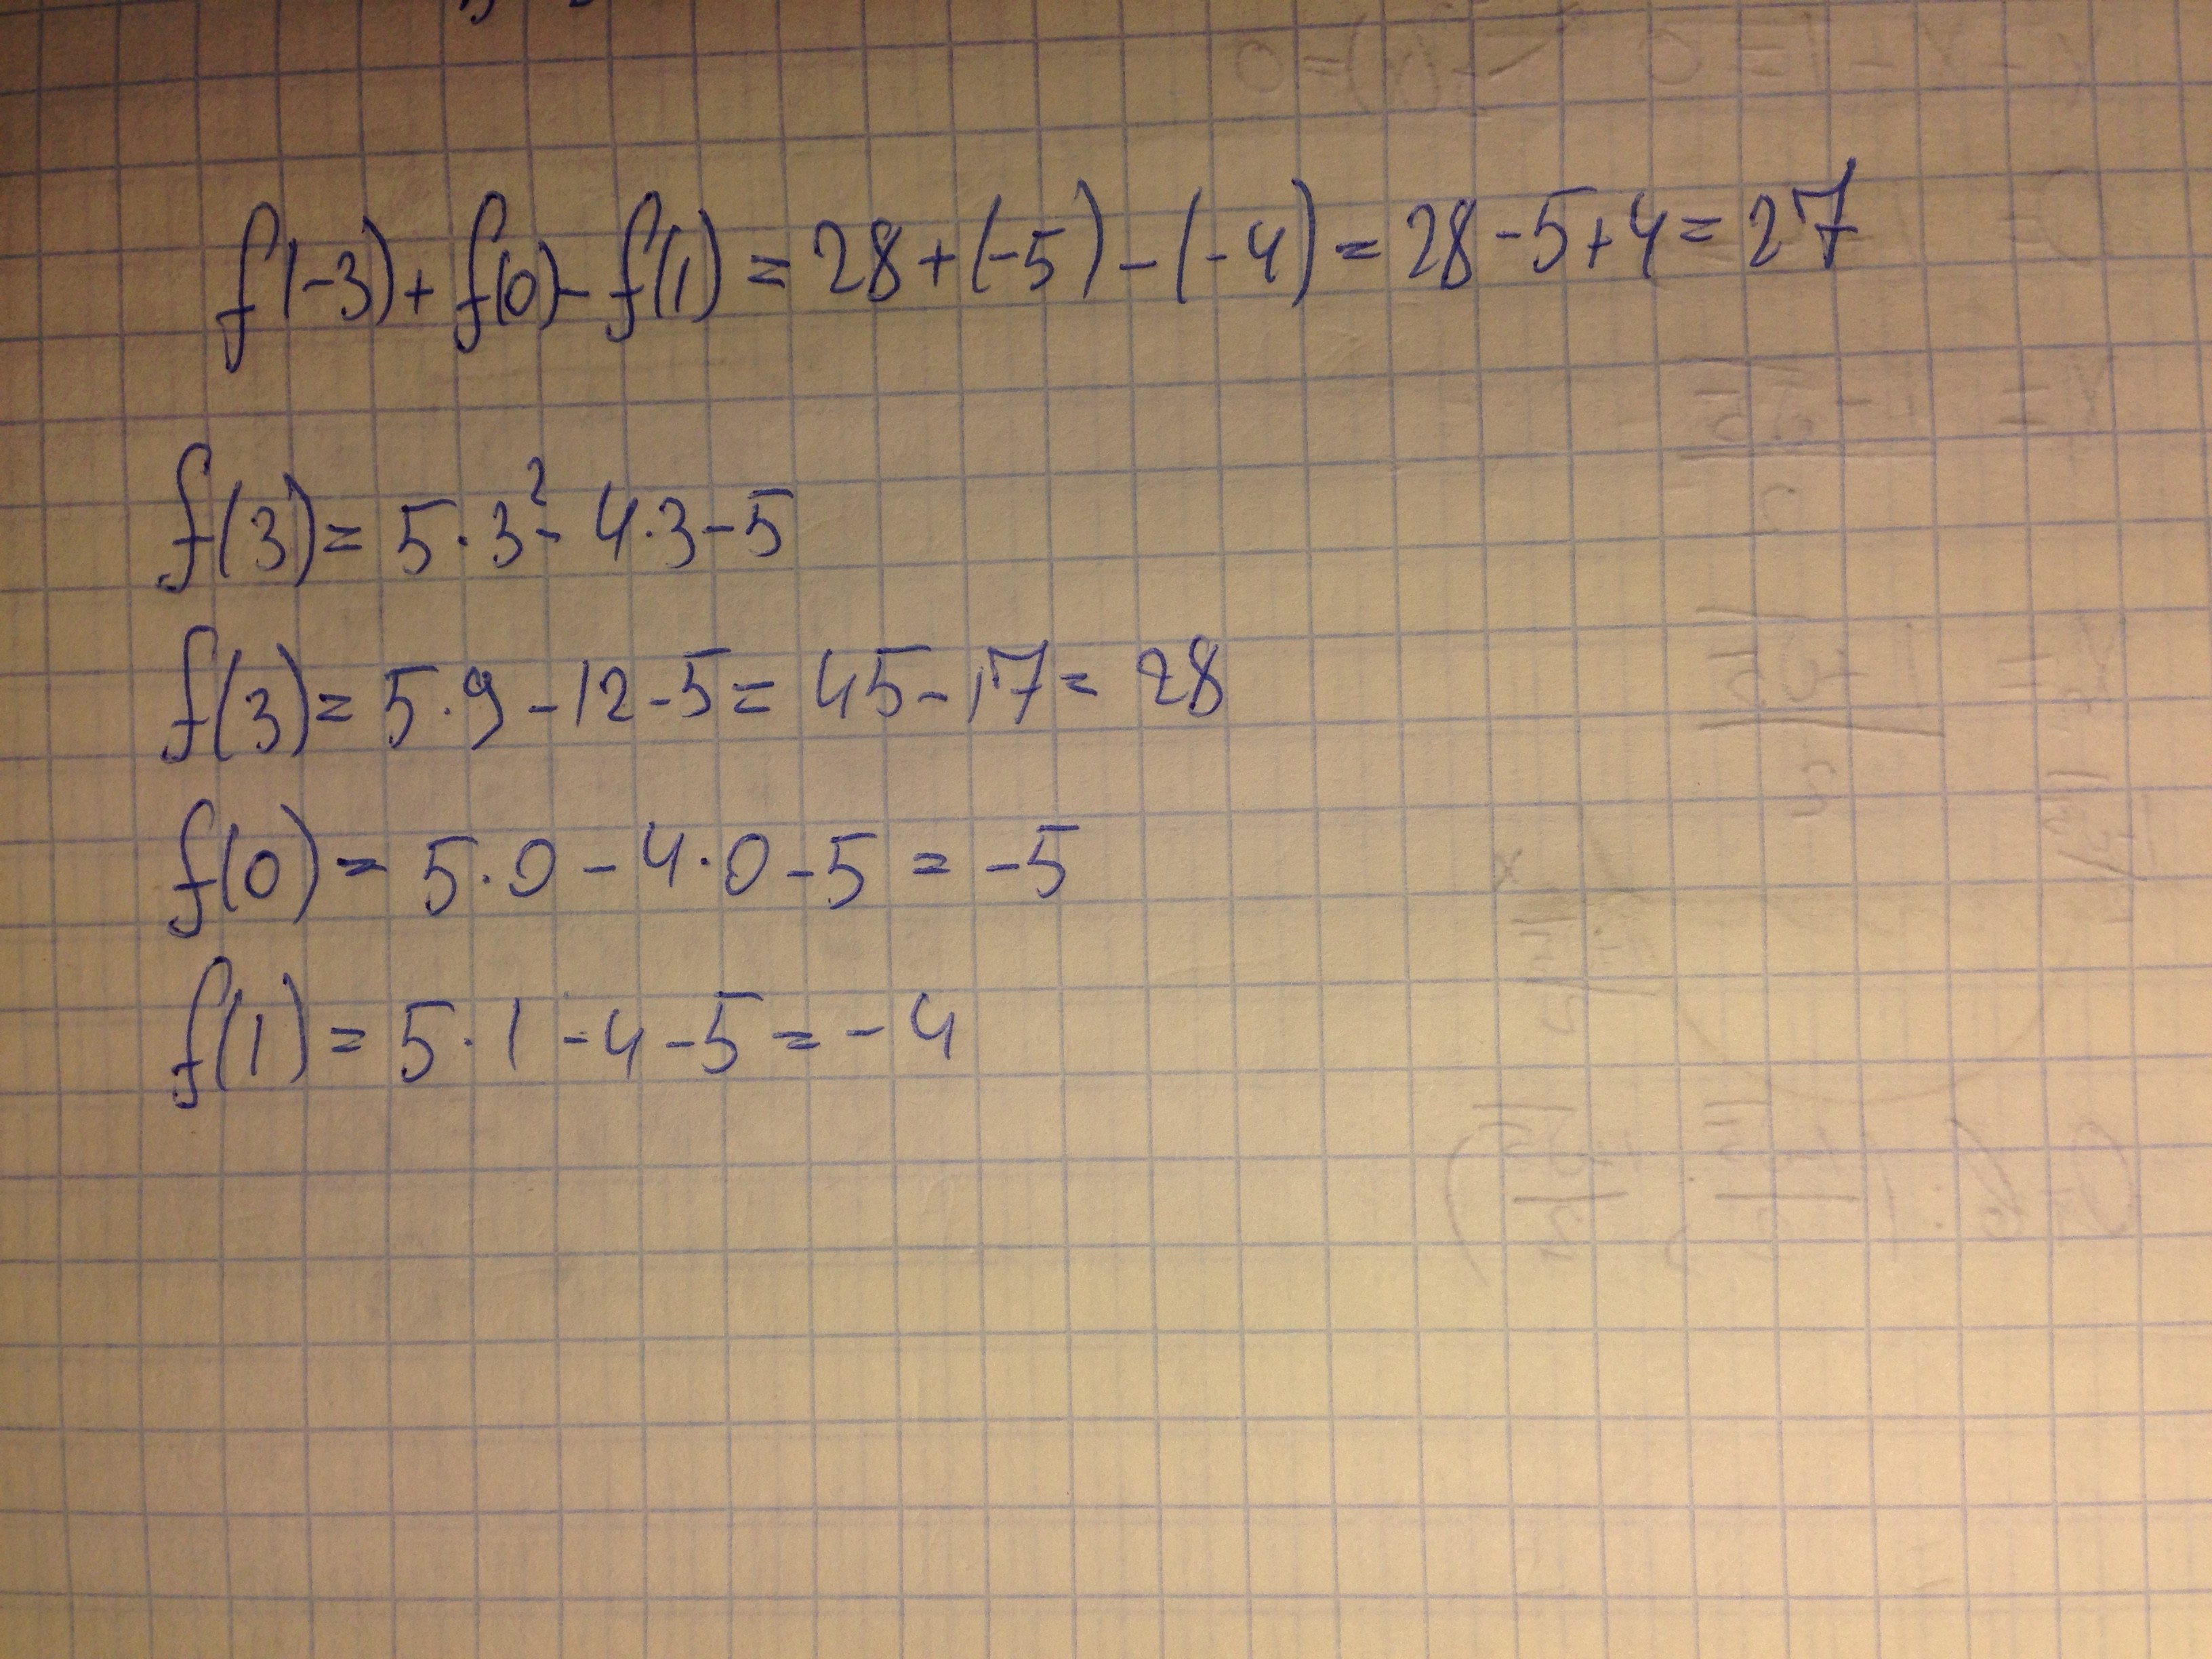 f(-3)+f(0)-f(1)=28+(-5)-(-4)=28-5+4=27
f(3)=5·3²-4·3-5
f(3)=5·9-12-5=45-17=28
f(0)=5·0-4·0-5=-5
f(1)=5·1-4-5=-4